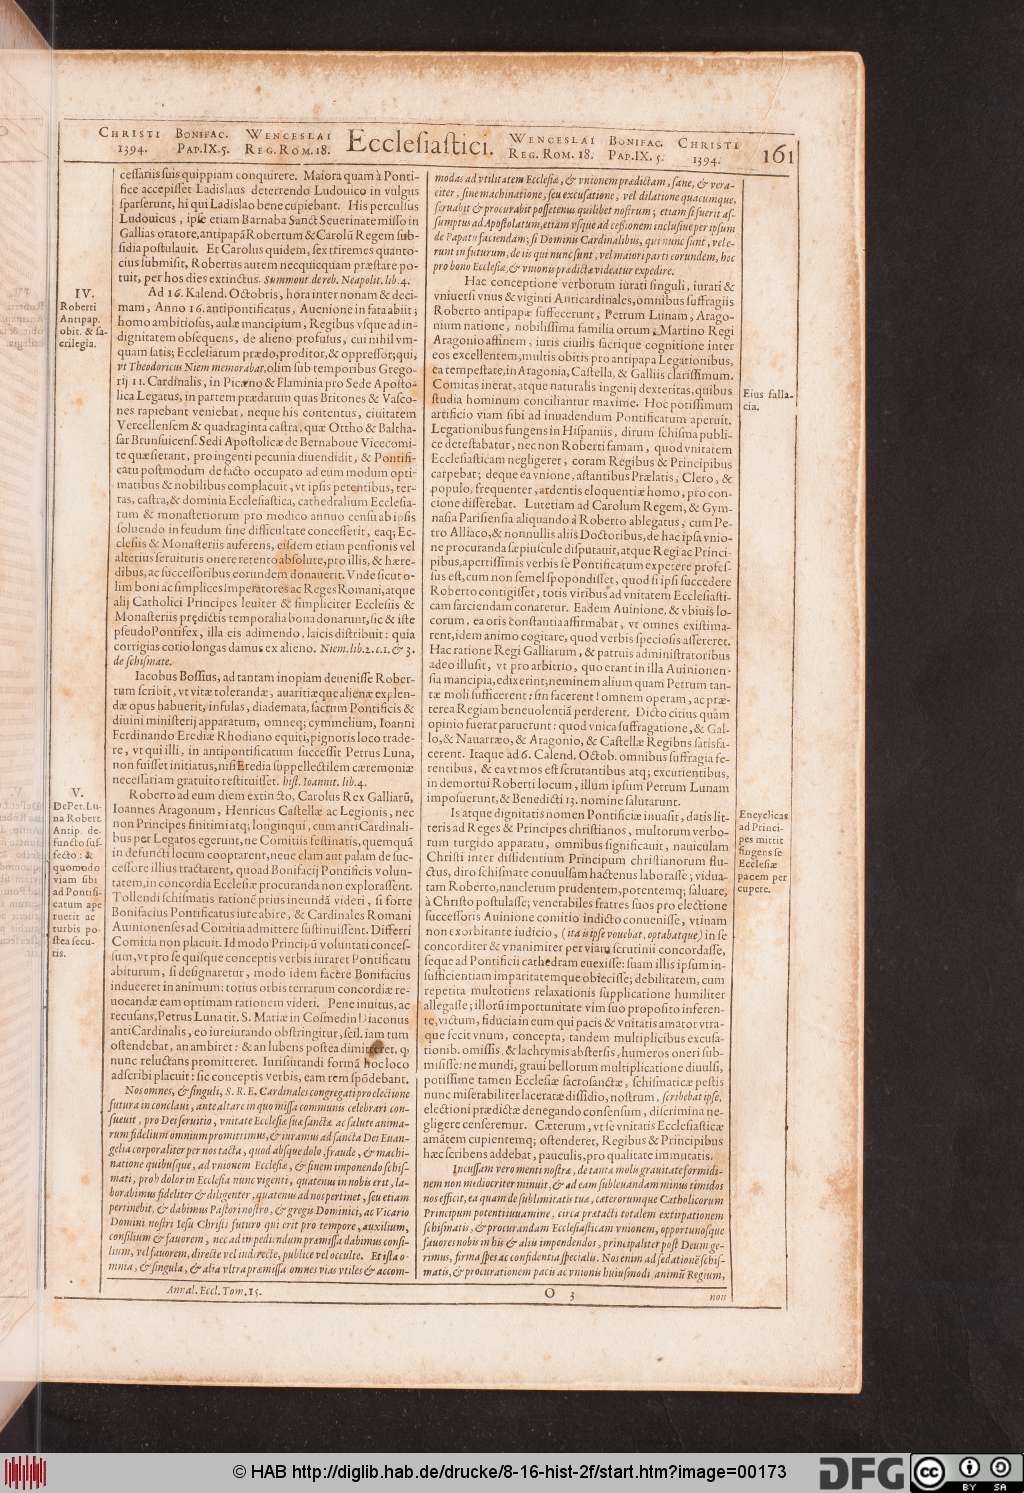 CHRISTI 1394. BONIFAC. PAP. IX. 5. WENCESLAI REG. ROM. 18. Ecclesiastici. WENCESLAI REG. ROM. 18. BONIFAC. PAP. IX. 5. CHRISTI 1394. 161
cessariis suis quippiam conquirere. Maiora quam à Ponti-
fice accepisset Ladislaus deterrendo Ludouico in vulgus
sparserunt, hi qui Ladislao bene cupiebant. His perculsus
Ludouicus, ipse etiam Barnaba Sanct Seuerinate misso in
Gallias oratore, antipapã Robertum & Carolũ Regem sub-
sidia postulauit. Et Carolus quidem, sex triremes quanto-
cius submisit, Robertus autem necquicquam præstare po-
tuit, per hos dies extinctus. Summont de reb. Neapolit. lib. 4.
IV.
Roberti
Antipap.
obit. & sa-
crilegia.
Ad 16. Kalend. Octobris, hora inter nonam & deci-
mam, Anno 16. antipontificatus, Auenione in fata abiit;
homo ambitiosus, aulæ mancipium, Regibus vsque ad in-
dignitatem obsequens, de alieno profusus, cui nihil vm-
quam satis; Ecclesiarum prædo, proditor, & oppressor; qui,
vt Theodoricus Niem memorabat, olim sub temporibus Grego-
rij 11. Cardinalis, in Piceno & Flaminia pro Sede Aposto-
lica Legatus, in partem prædarum quas Britones & Vasco-
nes rapiebant veniebat, neque his contentus, ciuitatem
Vercellensem & quadraginta castra, quæ Ottho & Baltha-
sar Brunsuicens. Sedi Apostolicæ de Bernaboue Vicecomi-
te quæsierant, pro ingenti pecunia diuendidit, & Pontifi-
catu postmodum de facto occupato ad eum modum opti-
matibus & nobilibus complacuit, vt ipsis petentibus, ter-
ras, castra, & dominia Ecclesiastica, cathedralium Ecclesia-
rum & monasteriorum pro modico annuo censu ab ipsis
soluendo in feudum sine difficultate concesserit, eaq; Ec-
clesiis & Monasteriis auferens, eisdem etiam pensionis vel
alterius seruitutis onere retento absolute, pro illis, & hære-
dibus, ac successoribus eorundem donauerit. Vnde sicut o-
lim boni ac simplices Imperatores ac Reges Romani, atque
alij Catholici Principes leuiter & simpliciter Ecclesiis &
Monasteriis prędictis temporalia bona donarunt, sic & iste
pseudoPontifex, illa eis adimendo, laicis distribuit: quia
corrigias corio longas damus ex alieno. Niem. lib. 2. c. 1. & 3.
de schismate.
Iacobus Bossius, ad tantam inopiam deuenisse Rober-
tum scribit, vt vitæ tolerandæ, auaritiæque alienæ explen-
dæ opus habuerit, infulas, diademata, sacrum Pontificis &
diuini ministerij apparatum, omneq; cymmelium, Ioanni
Ferdinando Erediæ Rhodiano equiti, pignoris loco trade-
re, vt qui illi, in antipontificatum successit Petrus Luna,
non fuisset initiatus, nisi Eredia suppellectilem cæremoniæ
necessariam gratuito restituisset. hist. Ioannit. lib. 4.
V.
De Pet. Lu-
na Robert.
Antip. de-
functo suf-
fecto: &
quomodo
viam sibi
ad Pontifi-
catum ape
ruerit ac
turbis po-
stea secu-
tis.
Roberto ad eum diem extincto, Carolus Rex Galliarũ,
Ioannes Aragonum, Henricus Castellæ ac Legionis, nec
non Principes finitimi atq; longinqui, cum antiCardinali-
bus per Legatos egerunt, ne Comitiis festinatis, quemquã
in defuncti locum cooptarent, neue clam aut palam de suc-
cessore illius tractarent, quoad Bonifacij Pontificis volun-
tatem, in concordia Ecclesiæ procuranda non explorassent.
Tollendi schismatis rationē prius ineundã videri, si forte
Bonifacius Pontificatus iure abire, & Cardinales Romani
Auinionenses ad Comitia admittere sustinuissent. Differri
Comitia non placuit. Id modo Principũ voluntati conces-
sum, vt pro se quisque conceptis verbis iuraret Pontificatu
abiturum, si designaretur, modo idem facere Bonifacius
induceret in animum: totius orbis terrarum concordiæ re-
uocandæ eam optimam rationem videri. Pene inuitus, ac
recusans, Petrus Luna tit. S. Mariæ in Cosmedin Diaconus
antiCardinalis, eo iureiurando obstringitur, scil. iam tum
ostendebat, an ambiret: & an lubens postea dimitteret, q̃
nunc reluctans promitteret. Iurisiurandi formã hoc loco
adscribi placuit: sic conceptis verbis, eam rem spõdebant.
Nos omnes, & singuli, S. R. E. Cardinales congregati pro electione
futura in conclaui, ante altare in quo missa communis celebrari con-
sueuit, pro Dei seruitio, vnitate Ecclesiæ suæ sanctæ ac salute anima-
rum fidelium omnium promittimus, & iuramus ad sancta Dei Euan-
gelia corporaliter per nos tacta, quod absque dolo, fraude, & machi-
natione quibusque, ad vnionem Ecclesiæ, & finem imponendo schis-
mati, proh dolor in Ecclesia nunc vigenti, quatenus in nobis erit, la-
borabimus fideliter & diligenter, quatenus ad nos pertinet, seu etiam
pertinebit. & dabimus Pastori nostro, & gregis Dominici, ac Vicario
Domini nostri Iesu Christi futuro qui erit pro tempore, auxilium,
consilium & fauorem, nec ad impediendum præmissa dabimus consi-
lium, vel fauorem, directe vel indirecte, publice vel occulte. Et ista o-
mnia, & singula, & alia vltra præmissa omnes vias vtiles & accom-
modas ad vtilitatem Ecclesiæ, & vnionem prædictam, sane, & vera-
citer, sine machinatione, seu excusatione, vel dilatione quacumque,
seruabit & procurabit posse tenus quilibet nostrum; etiam si fuerit as-
sumptus ad Apostolatum, etiam vsque ad cessionem inclusiue per ipsum
de Papatu faciendam; si Dominis Cardinalibus, qui nunc sunt, vel e-
runt in futurum, de iis qui nunc sunt, vel maiori parti eorundem, hoc
pro bono Ecclesiæ, & vnionis prædictæ videatur expedire.
Hac conceptione verborum iurati singuli, iurati &
vniuersi vnus & viginti Anticardinales, omnibus suffragiis
Roberto antipapæ suffecerunt, Petrum Lunam, Arago-
nium natione, nobilissima familia ortum, Martino Regi
Aragonio affinem, iuris ciuilis sacrique cognitione inter
eos excellentem, multis obitis pro antipapa Legationibus,
ea tempestate, in Aragonia, Castella, & Galliis clarissimum.
Comitas inerat, atque naturalis ingenij dexteritas, quibus
studia hominum conciliantur maxime. Hoc potissimum
artificio viam sibi ad inuadendum Pontificatum aperuit.
Eius falla-
cia.
Legationibus fungens in Hispaniis, dirum schisma publi-
ce detestabatur, nec non Roberti famam, quod vnitatem
Ecclesiasticam negligeret, coram Regibus & Principibus
carpebat; deque ea vnione, astantibus Prælatis, Clero, &
populo, frequenter, ardentis eloquentiæ homo, pro con-
cione disserebat. Lutetiam ad Carolum Regem, & Gym-
nasia Parisiensia aliquando à Roberto ablegatus, cum Pe-
tro Alliaco, & nonnullis aliis Doctoribus, de hac ipsa vnio-
ne procuranda sæpiuscule disputauit, atque Regi ac Princi-
pibus, apertissimis verbis se Pontificatum expetere profes-
sus est, cum non semel spopondisset, quod si ipsi succedere
Roberto contigisset, totis viribus ad vnitatem Ecclesiasti-
cam sarciendam conaretur. Eadem Auinione, & vbiuis lo-
corum, ea oris constantia affirmabat, vt omnes existima-
rent, idem animo cogitare, quod verbis speciosis assereret.
Hac ratione Regi Galliarum, & patruis administratoribus
adeo illusit, vt pro arbitrio, quo erant in illa Auinionen-
sia mancipia, edixerint; neminem alium quam Petrum tan-
tæ moli sufficerent: sin facerent! omnem operam, ac præ-
terea Regiam beneuolentiã perderent. Dicto citius quàm
opinio fuerat paruerunt: quod vnica suffragatione, & Gal-
lo, & Nauarræo, & Aragonio, & Castellæ Regibus satisfa-
cerent. Itaque ad 6. Calend. Octob. omnibus suffragia fe-
rentibus, & ea vt mos est scrutantibus atq; excutientibus,
in demortui Roberti locum, illum ipsum Petrum Lunam
imposuerunt, & Benedicti 13. nomine salutarunt.
Eneyelicas
ad Princi-
pes mittit
fingens se
Ecclesiæ
pacem per
cupere.
Is atque dignitatis nomen Pontificiæ inuasit, datis lit-
teris ad Reges & Principes christianos, multorum verbo-
rum turgido apparatu, omnibus significauit, nauiculam
Christi inter dissidentium Principum christianorum flu-
ctus, diro schismate conuulsam hactenus laborasse; vidua-
tam Roberto, nauclerum prudentem, potentemq; saluare,
à Christo postulasse; venerabiles fratres suos pro electione
successoris Auinione comitio indicto conuenisse, vtinam
non exorbitante iudicio, (ita is ipse vouebat, optabatque) in se
concorditer & vnanimiter per viam scrutinii concordasse,
seque ad Pontificii cathedram euexisse: suam illis ipsum in-
sufficientiam imparitatemque obiecisse; debilitatem, cum
repetita multotiens relaxationis supplicatione humiliter
allegasse; illorũ importunitate vim suo proposito inferen-
te, victum, fiducia in eum qui pacis & vnitatis amator vtra-
que fecit vnum, concepta, tandem multiplicibus excusa-
tionib. omissis & lachrymis abstersis, humeros oneri sub-
misisse: ne mundi, graui bellorum multiplicatione diuulsi,
potissime tamen Ecclesiæ sacrosanctæ, schismaticæ pestis
nunc miserabiliter laceratæ dissidio, nostrum, scribebat ipse,
electioni prædictæ denegando consensum, discrimina ne-
gligere censeremur. Cæterum, vt se vnitatis Ecclesiasticæ
amãtem cupientemq; ostenderet, Regibus & Principibus
hæc scribens addebat, pauculis, pro qualitate immutatis.
Incussam vero menti nostræ, de tanta molis grauitate formidi-
nem non mediocriter minuit, & ad eam subleuandam minus timidos
nos efficit, ea quam de sublimitatis tuæ, cæterorumque Catholicorum
Principum potentiuuamine, circa prætacti totalem extirpationem
schismatis, & procurandam Ecclesiasticam vnionem, opportunosque
fauores nobis in his & aliis impendendos, principaliter post Deum ge-
rimus, firma spes ac confidentia specialis. Nos enim ad sedationē schis-
matis, & procurationem pacis ac vnionis huiusmodi, animũ Regium,
Annal. Eccl. Tom. 15.
O 3
non
© HAB http://diglib.hab.de/drucke/8-16-hist-2f/start.htm?image=00173
DFG
cc
BY SA